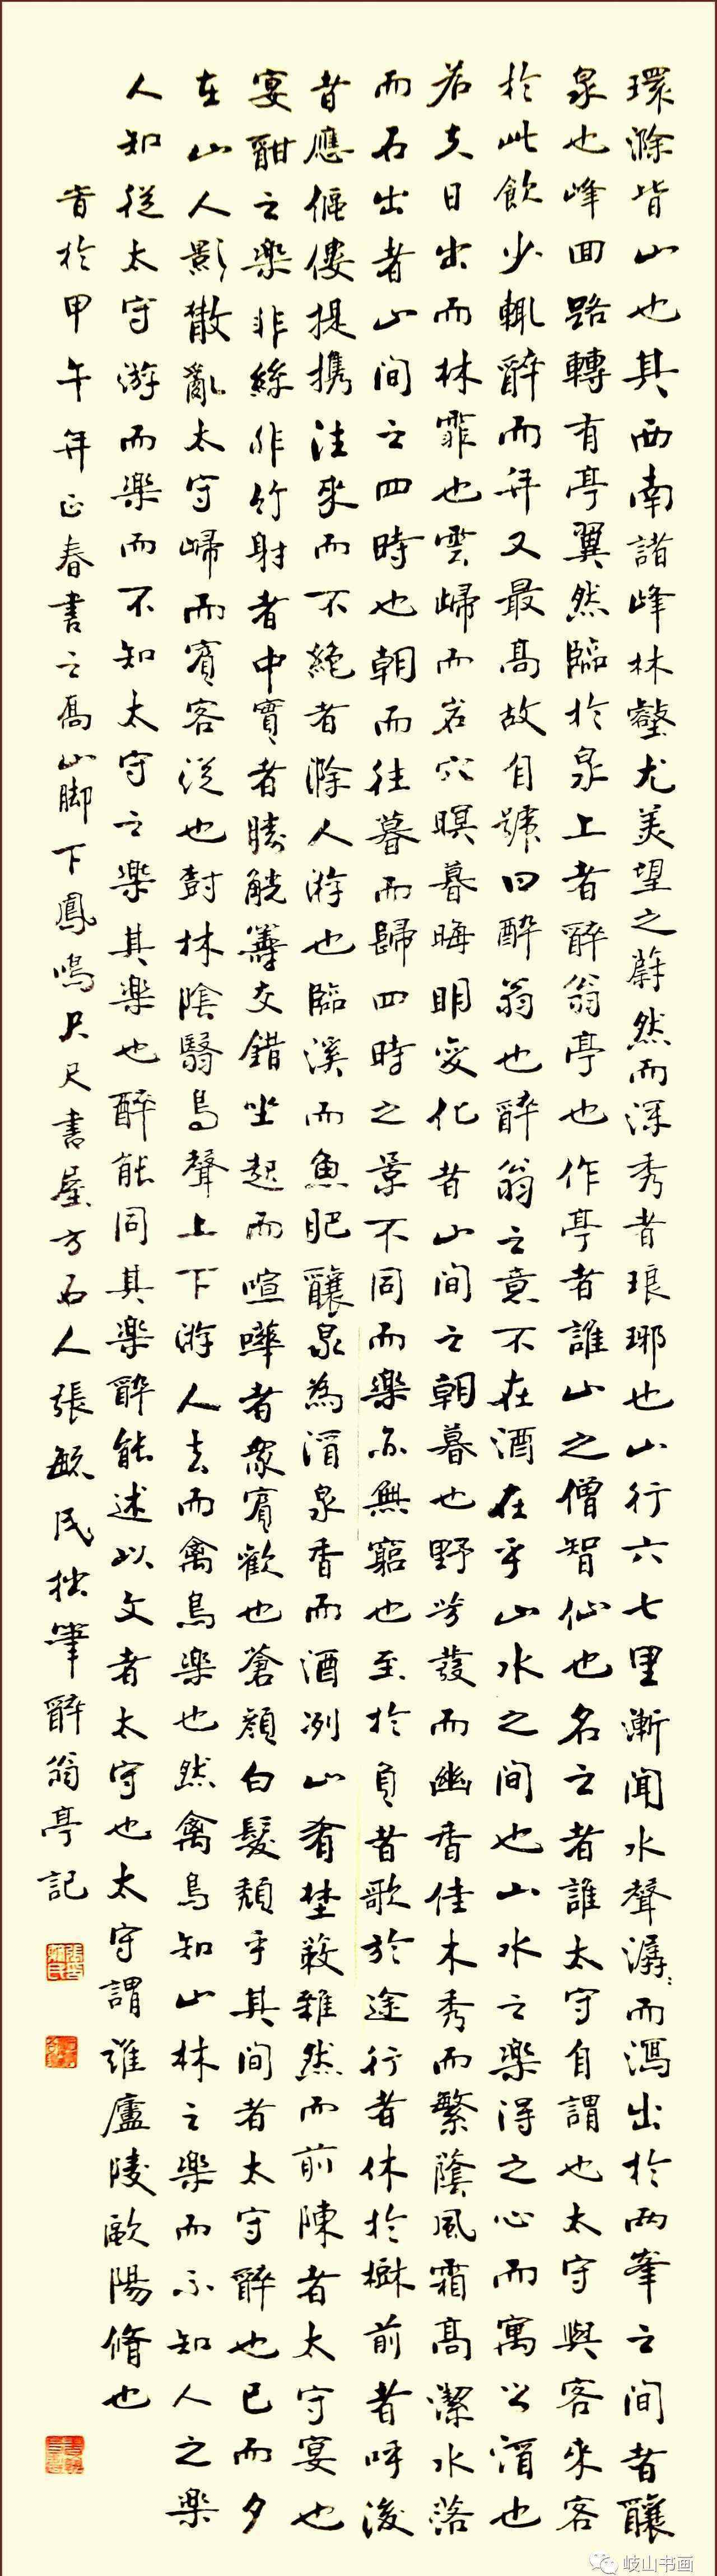 環滁皆山也其西南諸峰林壑尤美望之蔚然而深秀者琅琊也山行六七里漸聞水聲潺潺而瀉出於兩峯之間者釀
泉也峰回路轉有亭翼然臨於泉上者醉翁亭也作亭者誰山之僧智仙也名之者誰太守自謂也太守與客來客
於此飲少輒醉而年又最高故自號曰醉翁也醉翁之意不在酒在乎山水之間也山水之樂得之心而寓之酒也
若夫日出而林霏也雲歸而岩穴暝暮晦明變化者山間之朝暮也野芳發而幽香佳木秀而繁蔭風霜高潔水落
而石出者山間之四時也朝而往暮而歸四時之景不同而樂亦無窮也至於負者歌於途行者休於樹前者呼後
者應傴僂提攜往來而不絕者滁人游也臨溪而魚肥釀泉為酒泉香而酒冽山肴埜蔌雜然而前陳者太守宴也
宴酣之樂非絲非竹射者中實者勝觥籌交錯坐起而喧嘩者眾賓歡也蒼顏白髮頹乎其間者太守醉也已而夕
在山人影散亂太守歸而賓客從也樹林陰翳鳥聲上下游人去而禽鳥樂也然禽鳥知山林之樂而不知人之樂
人知從太守游而樂而不知太守之樂其樂也醉能同其樂醉能述以文者太守也太守謂誰廬陵歐陽脩也
旹於甲午年正春書之喬山脚下鳳鳴尺尺書屋方石人張毓民拙筆醉翁亭記
岐山书画